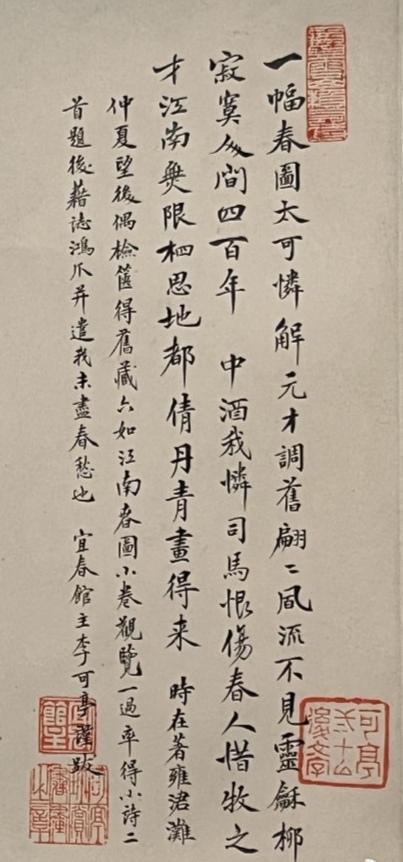 一幅春圖太可憐解元才調舊翩〻風流不見靈龢柳
寂寞人間四百年 中酒我憐司馬恨傷春人惜牧之
才江南無限相思地都倩丹青畫得来 時在著雍涒灘
仲夏望後偶檢篋得舊藏六如江南春圖小卷觀覽一過率得小詩二
首題後藉誌鴻爪并遣我未盡春愁也 宜春館主李可亭謹跋